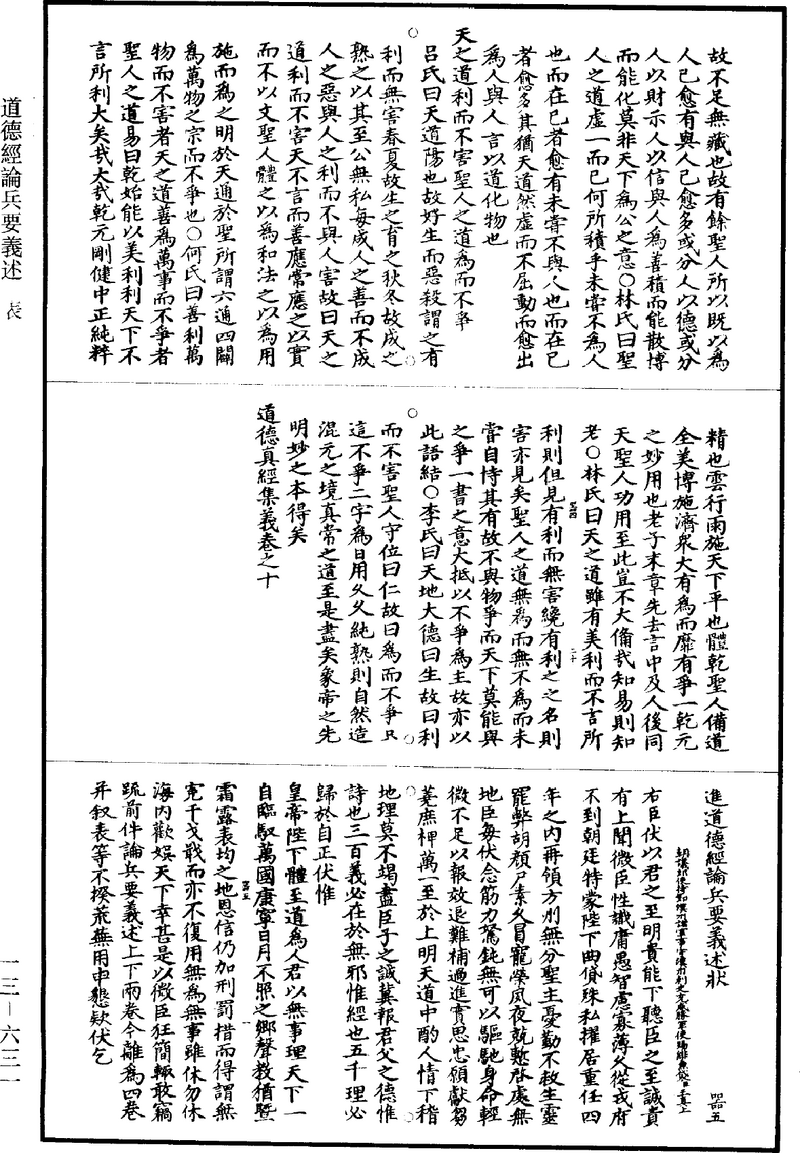 道德經論兵要義述 表
一三—六三一
故不足無藏也故有餘聖人所以既以爲
人己愈有與人己愈多或分人以德或分
人以財示人以信與人爲善積而能散博
而能化莫非天下爲公之意○林氏曰聖
人之道虛一而已何所積乎未嘗不爲人
也而在己者愈有未嘗不與人也而在己
者愈多其猶天道然虛而不屈動而愈出
爲人與人言以道化物也
天之道利而不害聖人之道爲而不爭
呂氏曰天道陽也故好生而惡殺謂之有
利而無害春夏故生之育之秋冬故成之
熟之以其至公無私每成人之善而不成
人之惡與人之利而不與人害故曰天之
道利而不害天不言而善應常應之以實
而不以文聖人體之以爲和法之以爲用
施而爲之明於天通於聖所謂六通四闢
爲萬物之宗而不爭也○何氏曰善利萬
物而不害者天之道善爲萬事而不爭者
聖人之道易曰乾始能以美利利天下不
言所利大矣哉大哉乾元剛健中正純粹
精也雲行雨施天下平也體乾聖人備道
全美博施濟衆大有爲而靡有爭一乾元
之妙用也老子末章先去言中及人後同
天聖人功用至此豈不大備哉知易則知
老○林氏曰天之道雖有美利而不言所
利則但見有利而無害纔有利之之名則
害亦見矣聖人之道無爲而無不爲而未
嘗自恃其有故不與物爭而天下莫能與
之爭一書之意大抵以不爭爲主故亦以
此語結○李氏曰天地大德曰生故曰利
而不害聖人守位曰仁故曰爲而不爭只
這不爭二字爲日用久久純熟則自然造
混元之境真常之道至是盡矣象帝之先
明妙之本得矣
道德真經集義卷之十
進道德經論兵要義述狀 器五
右臣伏以君之至明貴能下聽臣之至誠貴
有上聞微臣性識庸愚智慮寡薄久從戎府
不到朝廷特蒙陛下曲貸殊私擢居重任四
年之内再領方州無分聖主憂勤不救生靈
罷弊胡顏尸素久冒寵榮夙夜兢慙啓處無
地臣每伏念筋力駑鈍無可以驅馳身命輕
微不足以報效退難補過進實思忠願獻芻
蕘庶裨萬一至於上明天道中酌人情下稽
地理莫不竭盡臣子之誠冀報君父之德惟
詩也三百義必在於無邪惟經也五千理必
歸於自正伏惟
皇帝陛下體至道爲人君以無事理天下一
自臨馭萬國康寧日月不照之鄉聲教猶暨
霜露表均之地恩信仍加刑罰措而得謂無
寃干戈戢而亦不復用無爲無事雖休勿休
海内歡娛天下幸甚是以微臣狂簡輒敢竊
䟽前件論兵要義述上下兩卷今離爲四卷
并叙表等不揆荒蕪用申懇欵伏乞